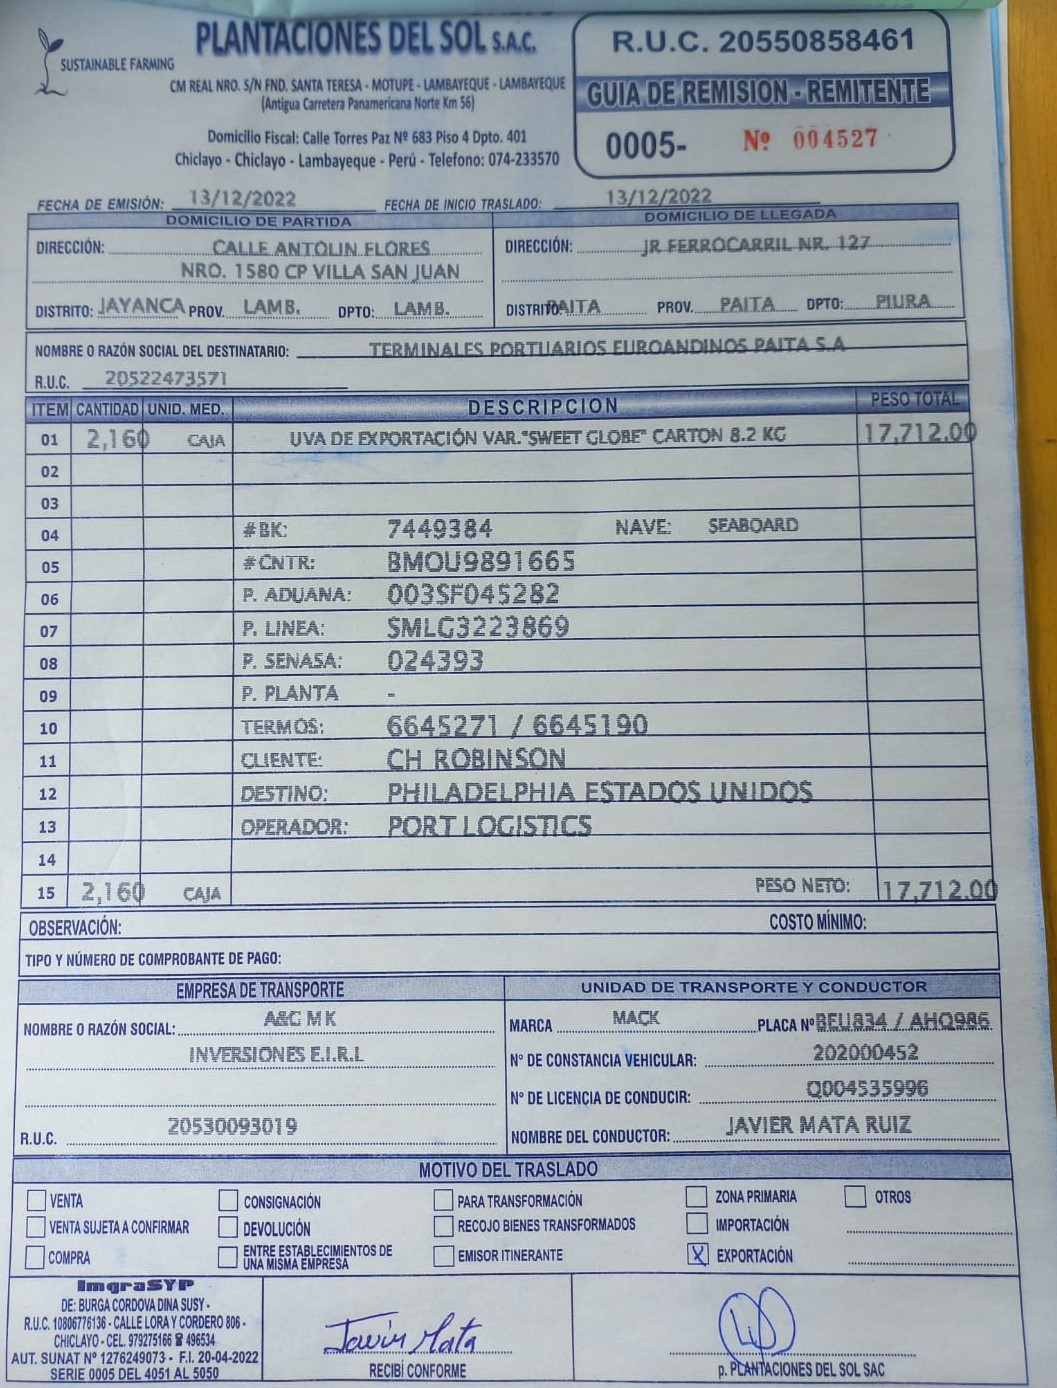 SUSTAINABLE FARMING
PLANTACIONES DEL SOL S.A.C.
CM REAL NRO. S/N FND. SANTA TERESA - MOTUPE - LAMBAYEQUE - LAMBAYEQUE
(Antigua Carretera Panamericana Norte Km 56)
Domicilio Fiscal: Calle Torres Paz Nº 683 Piso 4 Dpto. 401
Chiclayo - Chiclayo - Lambayeque - Perú - Telefono: 074-233570
R.U.C. 20550858461
GUIA DE REMISION - REMITENTE
0005- Nº 004527
FECHA DE EMISIÓN: 13/12/2022 FECHA DE INICIO TRASLADO: 13/12/2022
DOMICILIO DE PARTIDA
DIRECCIÓN: CALLE ANTOLIN FLORES
NRO. 1580 CP VILLA SAN JUAN
DISTRITO: JAYANCA PROV. LAMB. DPTO: LAMB.
DOMICILIO DE LLEGADA
DIRECCIÓN: JR FERROCARRIL NR. 127
DISTRITO PAITA PROV. PAITA DPTO: PIURA
NOMBRE O RAZÓN SOCIAL DEL DESTINATARIO: TERMINALES PORTUARIOS EUROANDINOS PAITA S.A
R.U.C. 20522473571
ITEM CANTIDAD UNID. MED. DESCRIPCION PESO TOTAL
01 2,160 CAJA UVA DE EXPORTACIÓN VAR."SWEET GLOBE" CARTON 8.2 KG 17,712.00
02
03
04 #BK: 7449384 NAVE: SEABOARD
05 #CNTR: BMOU9891665
06 P. ADUANA: 003SF045282
07 P. LINEA: SMLG3223869
08 P. SENASA: 024393
09 P. PLANTA -
10 TERMOS: 6645271 / 6645190
11 CLIENTE: CH ROBINSON
12 DESTINO: PHILADELPHIA ESTADOS UNIDOS
13 OPERADOR: PORT LOGISTICS
14
15 2,160 CAJA PESO NETO: 17,712.00
OBSERVACIÓN: COSTO MÍNIMO:
TIPO Y NÚMERO DE COMPROBANTE DE PAGO:
EMPRESA DE TRANSPORTE
NOMBRE O RAZÓN SOCIAL: A&G M K
INVERSIONES E.I.R.L
R.U.C. 20530093019
UNIDAD DE TRANSPORTE Y CONDUCTOR
MARCA MACK PLACA Nº BEU834 / AHQ986
N° DE CONSTANCIA VEHICULAR: 202000452
N° DE LICENCIA DE CONDUCIR: Q004535996
NOMBRE DEL CONDUCTOR: JAVIER MATA RUIZ
MOTIVO DEL TRASLADO
VENTA CONSIGNACIÓN PARA TRANSFORMACIÓN ZONA PRIMARIA OTROS
VENTA SUJETA A CONFIRMAR DEVOLUCIÓN RECOJO BIENES TRANSFORMADOS IMPORTACIÓN
COMPRA ENTRE ESTABLECIMIENTOS DE UNA MISMA EMPRESA EMISOR ITINERANTE X EXPORTACIÓN
ImgraSYP
DE: BURGA CORDOVA DINA SUSY -
R.U.C. 10806776136 - CALLE LORA Y CORDERO 806 -
CHICLAYO - CEL. 979275166 ☎ 496534
AUT. SUNAT N° 1276249073 - F.I. 20-04-2022
SERIE 0005 DEL 4051 AL 5050
Javier Mata
RECIBÍ CONFORME
p. PLANTACIONES DEL SOL SAC